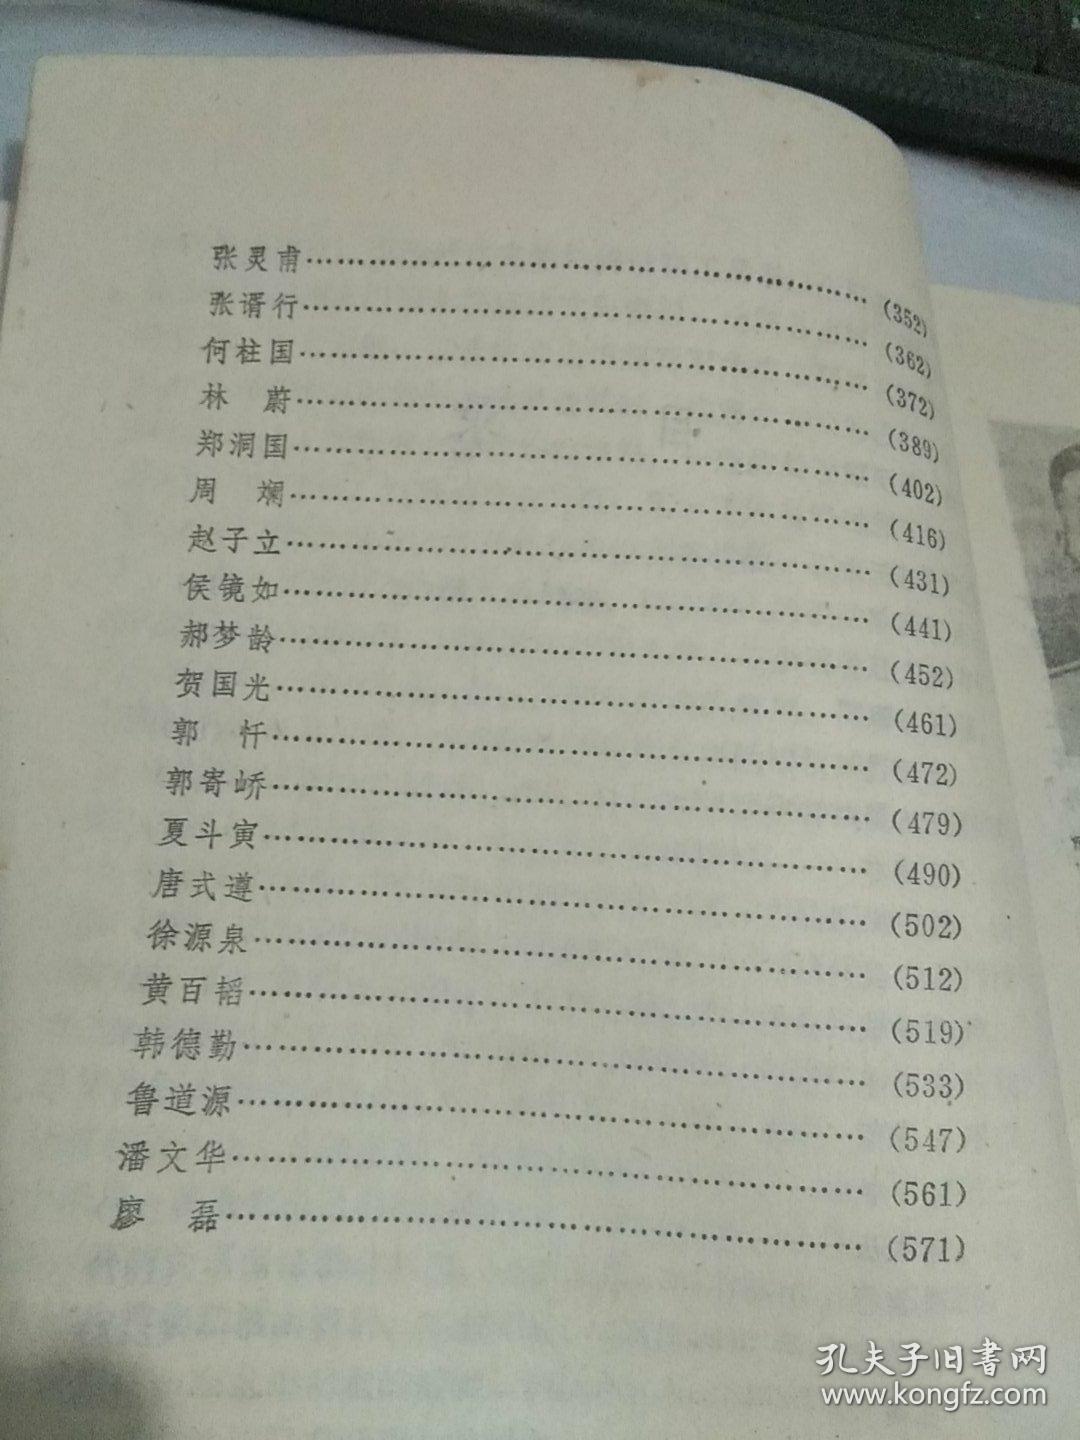 张灵甫……………………………………………………(352)
张谞行……………………………………………………(362)
何柱国……………………………………………………(372)
林　蔚……………………………………………………(389)
郑洞国……………………………………………………(402)
周　斓……………………………………………………(416)
赵子立……………………………………………………(431)
侯镜如……………………………………………………(441)
郝梦龄……………………………………………………(452)
贺国光……………………………………………………(461)
郭　忏……………………………………………………(472)
郭寄峤……………………………………………………(479)
夏斗寅……………………………………………………(490)
唐式遵……………………………………………………(502)
徐源泉……………………………………………………(512)
黄百韬……………………………………………………(519)
韩德勤……………………………………………………(533)
鲁道源……………………………………………………(547)
潘文华……………………………………………………(561)
廖　磊……………………………………………………(571)
孔夫子旧书网
www.kongfz.com